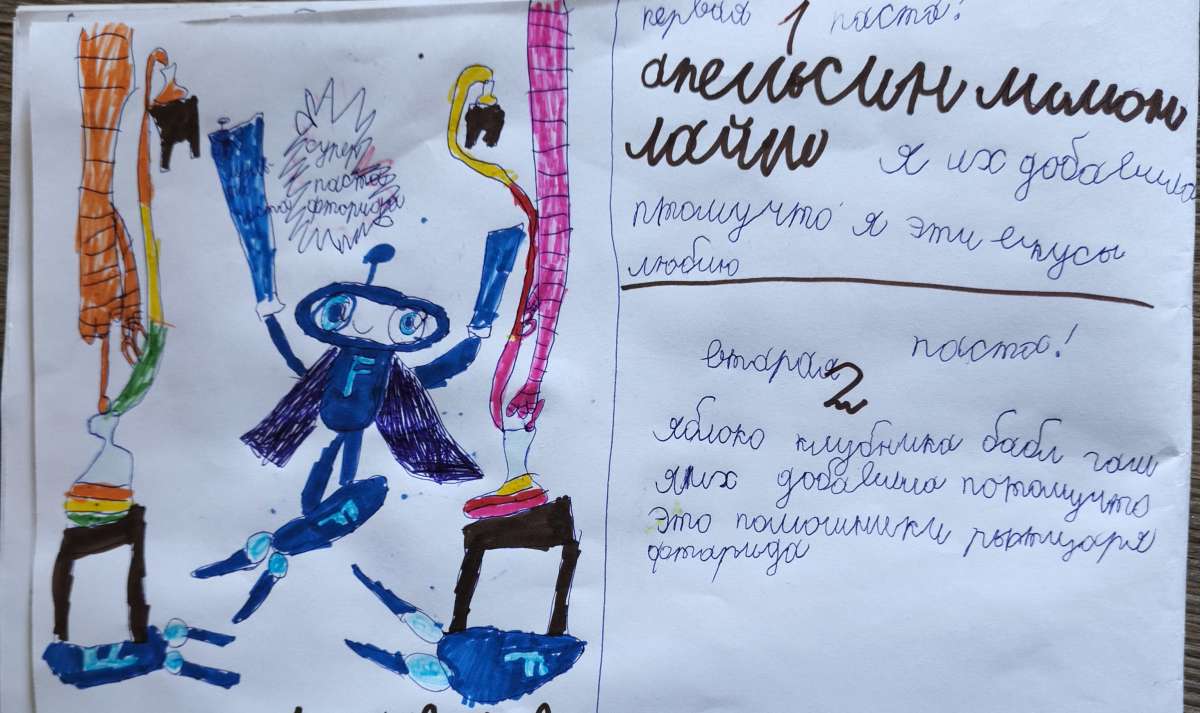 супер
паста
фторида
F
F
F
F
первая 1 паста!
апельсин лимон
лайм
я их добавила
птомучто я эти вкусы
люблю
вторая 2 паста!
яблоко клубника бабл гам
я их добавила потомучто
это помошники рытцаря
фторида